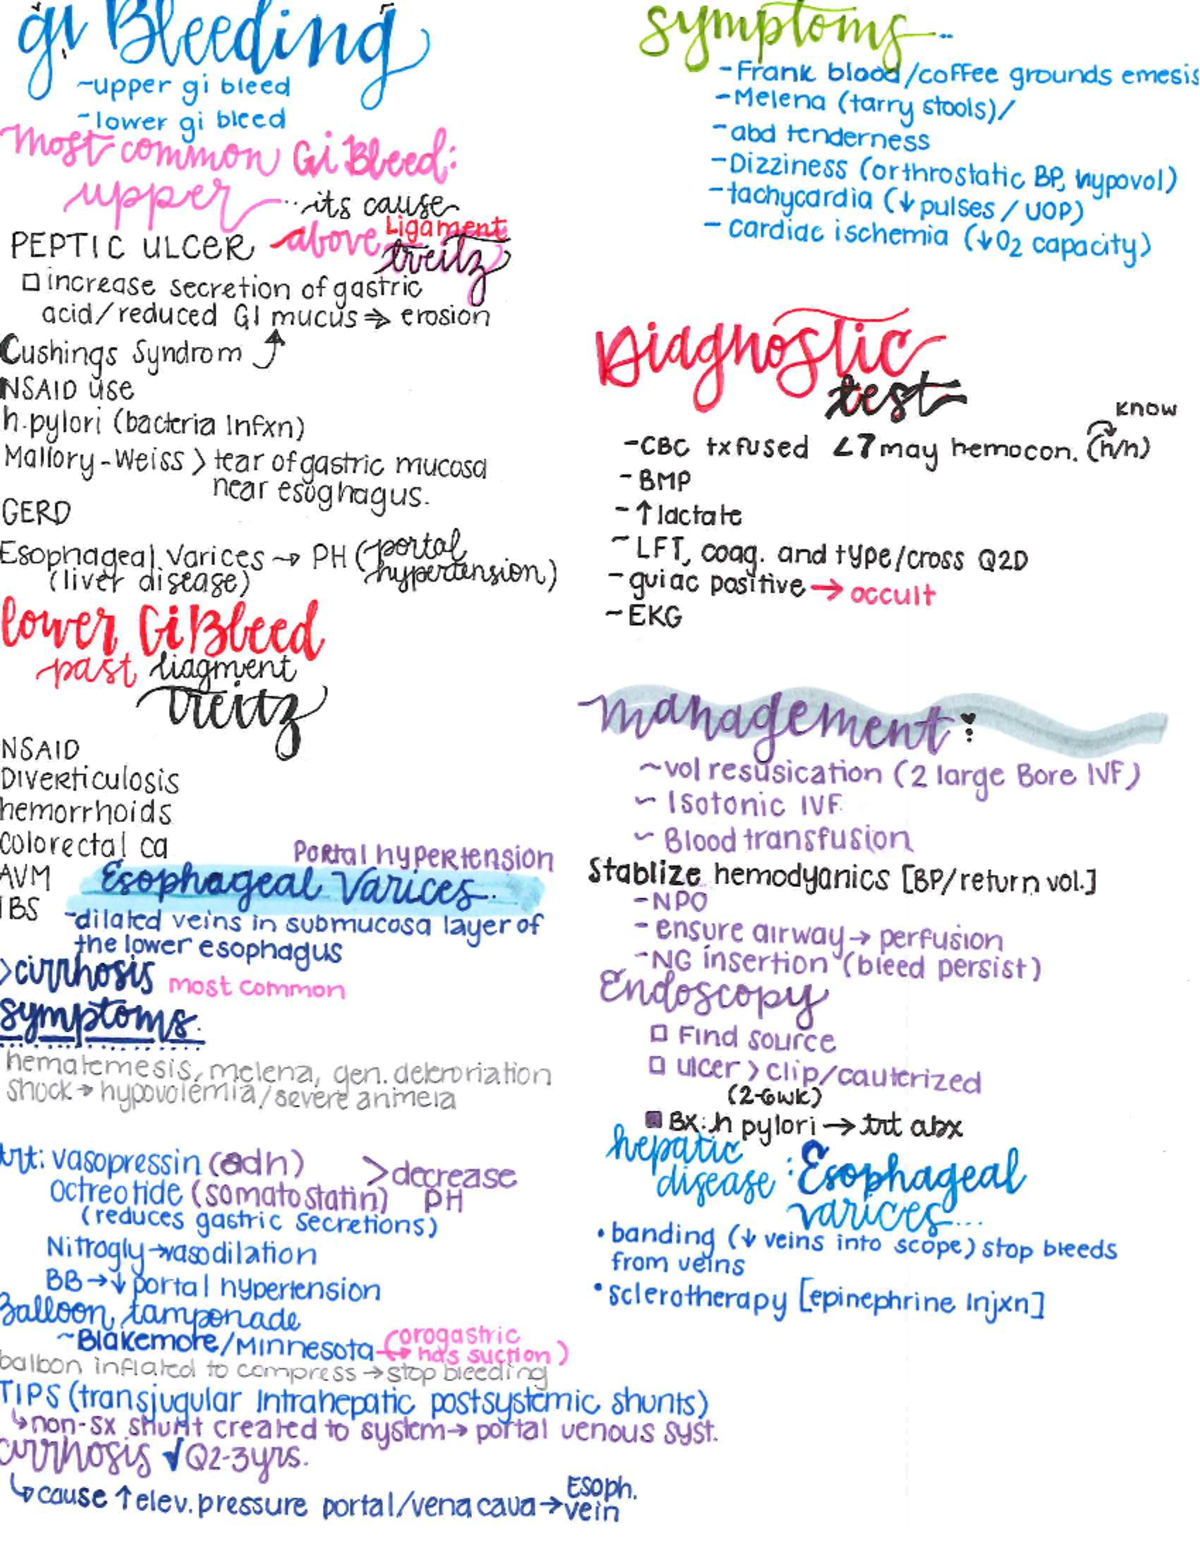 gi Bleeding
~upper gi bleed
~lower gi bleed
most common Gi Bleed:
upper ...its cause
PEPTIC ULCER above Ligament
treitz
□ increase secretion of gastric
acid/reduced GI mucus ⇒ erosion
Cushings Syndrom ↑
NSAID use
h.pylori (bacteria Infxn)
Mallory-Weiss > tear of gastric mucosa
near esoghagus.
GERD
Esophageal Varices → PH (portal
(liver disease) hypertension)
lower GI Bleed
past liagment
treitz
NSAID
Diverticulosis
hemorrhoids
colorectal ca
AVM
IBS
Portal hypertension
Esophageal Varices.
-dilated veins in submucosa layer of
the lower esophagus
>cirrhosis most common
symptoms.
hematemesis, melena, gen. deteroriation
shock → hypovolemia/severe animeia
trt: vasopressin (adh) >decrease
octreotide (somatostatin) PH
(reduces gastric secretions)
Nitrogly→vasodilation
BB→↓ portal hypertension
Balloon tamponade
~Blakemore/Minnesota (orogastric
↳ has suction)
balloon inflated to compress → stop bleeding
TIPS (transjugular Intrahepatic postsystemic shunts)
↳non-sx shunt created to system→ portal venous syst.
cirrhosis √ Q2-3yrs.
↳cause ↑ elev. pressure portal/vena cava → Esoph.
vein
symptoms...
-Frank blood/coffee grounds emesis
-Melena (tarry stools)/
-abd tenderness
-Dizziness (orthrostatic BP, hypovol)
-tachycardia (↓ pulses / UOP)
- cardiac ischemia (↓O2 capacity)
Diagnostic
test
know
-CBC txfused <7 may hemocon. (h/h)
-BMP
-↑ lactate
-LFT, coag. and type/cross Q2D
-guiac positive → occult
-EKG
management:
~vol resusication (2 large Bore IVF)
~ Isotonic IVF
~ Blood transfusion
Stablize hemodyanics [BP/return vol.]
-NPO
- ensure airway → perfusion
-NG insertion (bleed persist)
Endoscopy
□ Find source
□ ulcer > clip/cauterized
(2-6wk)
■ Bx: h pylori → trt abx
hepatic
disease : Esophageal
varices...
•banding (↓ veins into scope) stop bleeds
from veins
•sclerotherapy [epinephrine Injxn]